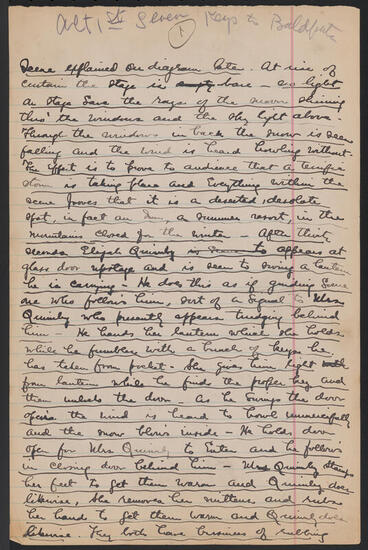 Act 1st Seven Keys to Baldpate
1
Scene explained on diagram late. At rise of
curtain the stage is empty bare - no light
on stage save the rays of the moon shining
thro' the windows and the sky light above.
Through the windows in back the snow is seen
falling and the wind is heard howling without.
The effect is to prove to audience that a terrific
storm is taking place and Everything within the
scene proves that it is a deserted, desolate
spot, in fact an Inn, a summer resort, in the
mountains closed for the winter - After thirty
seconds Elijah Quimby is seen to appears at
glass door upstage and is seen to swing a lantern
he is carrying - He does this as if guiding some
one who follows him, sort of a signal to Mrs
Quimby who presently appears trudging behind
him - He hands her lantern which she holds
while he fumbles with a bunch of keys he
has taken from pocket - She gives him light
from lantern while he finds the proper key and
then unlocks the door - As he swings the door
open the wind is heard to howl unmercifully
and the snow blows inside - He holds door
open for Mrs Quimby to Enter and he follows
in closing door behind him - Mrs Quimby stamps
her feet to get them warm and Quimby does
likewise, she removes her mittens and rubs
her hands to get them warm and Quimby does
likewise. They both have business of rubbing